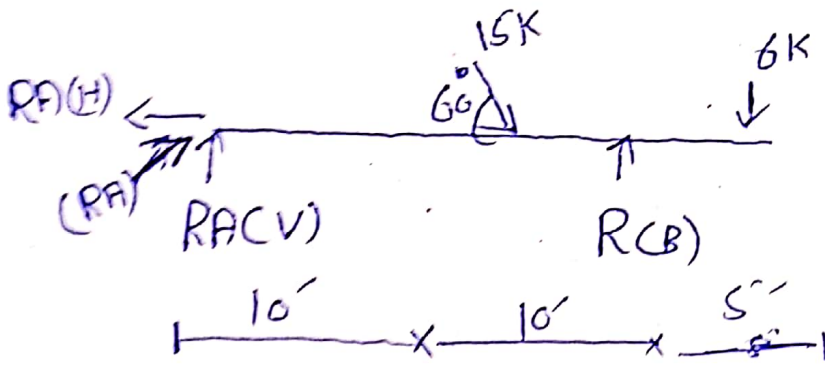 15K
6K
RA(H)
60°
(RA)
RA(V)
R(B)
10′
10′
5′′